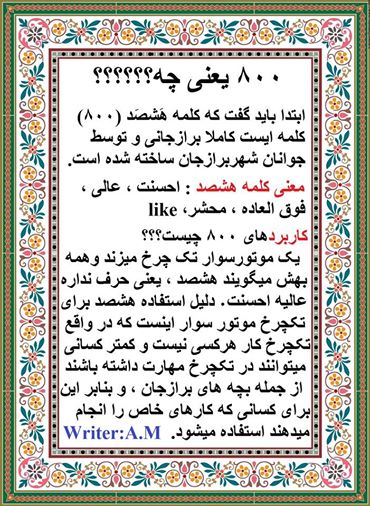 ۸۰۰ یعنی چه؟؟؟؟؟؟
ابتدا باید گفت که کلمه هَشصَد (۸۰۰)
کلمه ایست کاملا برازجانی و توسط
جوانان شهربرازجان ساخته شده است.
معنی کلمه هشصد : احسنت ، عالی ،
فوق العاده ، محشر، like
کاربردهای ۸۰۰ چیست؟؟؟
یک موتورسوار تک چرخ میزند وهمه
بهش میگویند هشصد ، یعنی حرف نداره
عالیه احسنت. دلیل استفاده هشصد برای
تکچرخ موتور سوار اینست که در واقع
تکچرخ کار هرکسی نیست و کمتر کسانی
میتوانند در تکچرخ مهارت داشته باشند
از جمله بچه های برازجان ، و بنابر این
برای کسانی که کارهای خاص را انجام
میدهند استفاده میشود. Writer:A.M